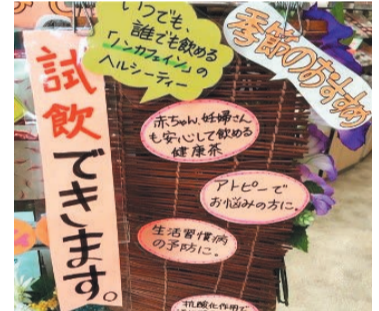 いつでも、
誰でも飲める
「ノンカフェイン」の
ヘルシーティー
季節のおすすめ
試飲できます。
赤ちゃん、妊婦さん
も安心して飲める
健康茶
アトピーで
お悩みの方に。
生活習慣病
の予防に。
抗酸化作用で